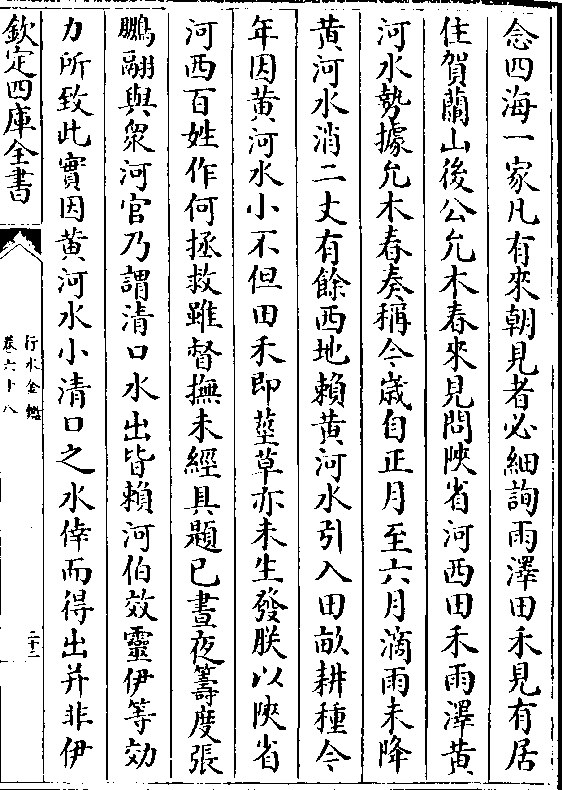 念四海一家凡有來朝見者必細詢雨澤田禾見有居
住賀蘭山後公允木春來見問陜省河西田禾雨澤黄
河水勢據允木春奏稱今歲自正月至六月滴雨未降
黄河水消二丈有餘西地賴黄河水引入田畝耕種今
年因黄河水小不但田禾即莖草亦未生發朕以陜省
河西百姓作何拯救雖督撫未經具題已晝夜籌度張
鵬翮與衆河官乃謂清口水出皆賴河伯效靈伊等効
力所致此實因黄河水小清口之水倖而得出并非伊
欽定四庫全書
行水金鑑
卷六十八
二十二